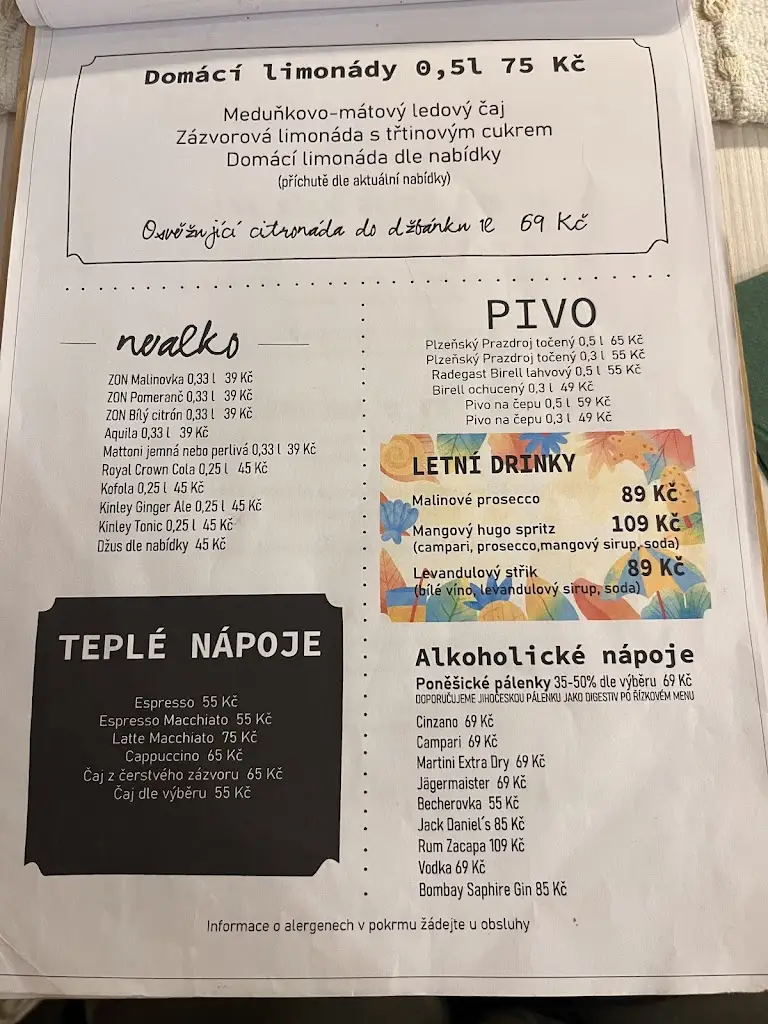 Domácí limonády 0,5l 75 Kč
Meduňkovo-mátový ledový čaj
Zázvorová limonáda s třtinovým cukrem
Domácí limonáda dle nabídky
(příchutě dle aktuální nabídky)
Osvěžující citronáda do džbánku 1l 69 Kč
nealko
ZON Malinovka 0,33 l 39 Kč
ZON Pomeranč 0,33 l 39 Kč
ZON Bílý citrón 0,33 l 39 Kč
Aquila 0,33 l 39 Kč
Mattoni jemná nebo perlivá 0,33 l 39 Kč
Royal Crown Cola 0,25 l 45 Kč
Kofola 0,25 l 45 Kč
Kinley Ginger Ale 0,25 l 45 Kč
Kinley Tonic 0,25 l 45 Kč
Džus dle nabídky 45 Kč
TEPLÉ NÁPOJE
Espresso 55 Kč
Espresso Macchiato 55 Kč
Latte Macchiato 75 Kč
Cappuccino 65 Kč
Čaj z čerstvého zázvoru 65 Kč
Čaj dle výběru 55 Kč
PIVO
Plzeňský Prazdroj točený 0,5 l 65 Kč
Plzeňský Prazdroj točený 0,3 l 55 Kč
Radegast Birell lahvový 0,5 l 55 Kč
Birell ochucený 0,3 l 49 Kč
Pivo na čepu 0,5 l 59 Kč
Pivo na čepu 0,3 l 49 Kč
LETNÍ DRINKY
Malinové prosecco 89 Kč
Mangový hugo spritz 109 Kč
(campari, prosecco,mangový sirup, soda)
Levandulový střik 89 Kč
(bílé víno, levandulový sirup, soda)
Alkoholické nápoje
Poněšické pálenky 35-50% dle výběru 69 Kč
DOPORUČUJEME JIHOČESKOU PÁLENKU JAKO DIGESTIV PO ŘÍZKOVÉM MENU
Cinzano 69 Kč
Campari 69 Kč
Martini Extra Dry 69 Kč
Jägermaister 69 Kč
Becherovka 55 Kč
Jack Daniel´s 85 Kč
Rum Zacapa 109 Kč
Vodka 69 Kč
Bombay Saphire Gin 85 Kč
Informace o alergenech v pokrmu žádejte u obsluhy